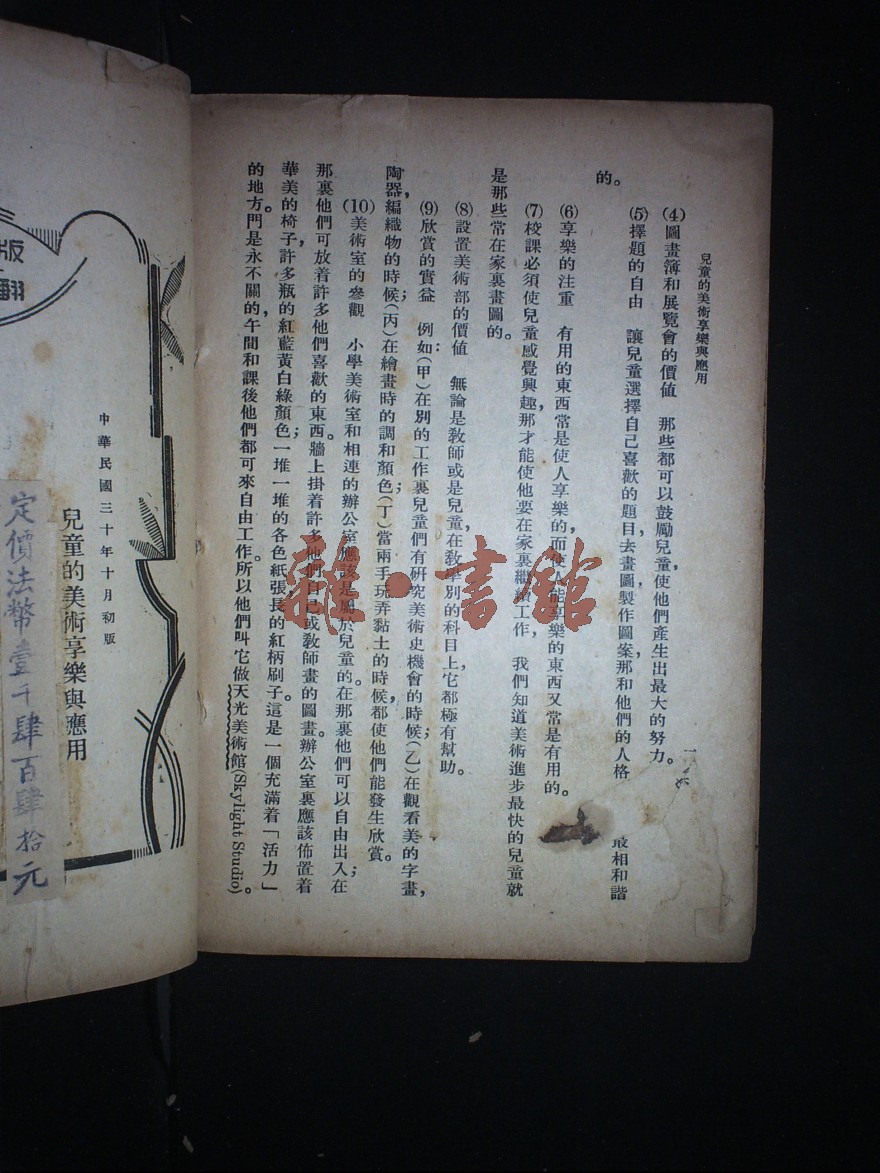 兒童的美術享樂與應用
的。
(4)圖畫簿和展覽會的價值　那些都可以鼓勵兒童，使他們產生出最大的努力。
(5)擇題的自由　讓兒童選擇自己喜歡的題目去畫圖，製作圖案，那和他們的人格最相和諧
(6)享樂的注重　有用的東西常是使人享樂的，而使人能享樂的東西又常是有用的。
(7)校課必須使兒童感覺興趣，那才能使他要在家裏繼續工作，我們知道美術進步最快的兒童就
是那些常在家裏畫圖的。
(8)設置美術部的價值　無論是教師或是兒童，在教學別的科目上，它都極有幫助。
(9)欣賞的實益　例如(甲)在別的工作裏兒童們有研究美術史機會的時候；(乙)在觀看美的字畫，
陶器，編織物的時候；(丙)在繪畫時的調和顏色；(丁)當兩手玩弄黏土的時候，都使他們能發生欣賞。
(10)美術室的參觀　小學美術室和相連的辦公室應該是屬於兒童的。在那裏他們可以自由出入；在
那裏他們可放着許多他們喜歡的東西。牆上掛着許多他們自己或教師畫的圖畫。辦公室裏應該佈置着
華美的椅子，許多瓶的紅藍黃白綠顏色；一堆一堆的各色紙張，長的紅柄刷子。這是一個充滿着「活力」
的地方。門是永不關的，午間和課後他們都可來自由工作。所以他們叫它做天光美術館(Skylight Studio)。
版
翻
中華民國三十年十月初版
兒童的美術享樂與應用
定價法幣壹千肆百肆拾元
雜·書館